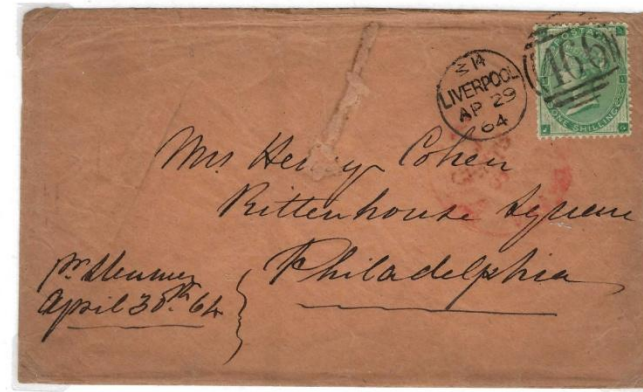 14
LIVERPOOL
AP 29
64
466
ONE SHILLING
Mrs Henry Cohen
Rittenhouse Square
Philadelphia
pr. Steamer
April 30th 64